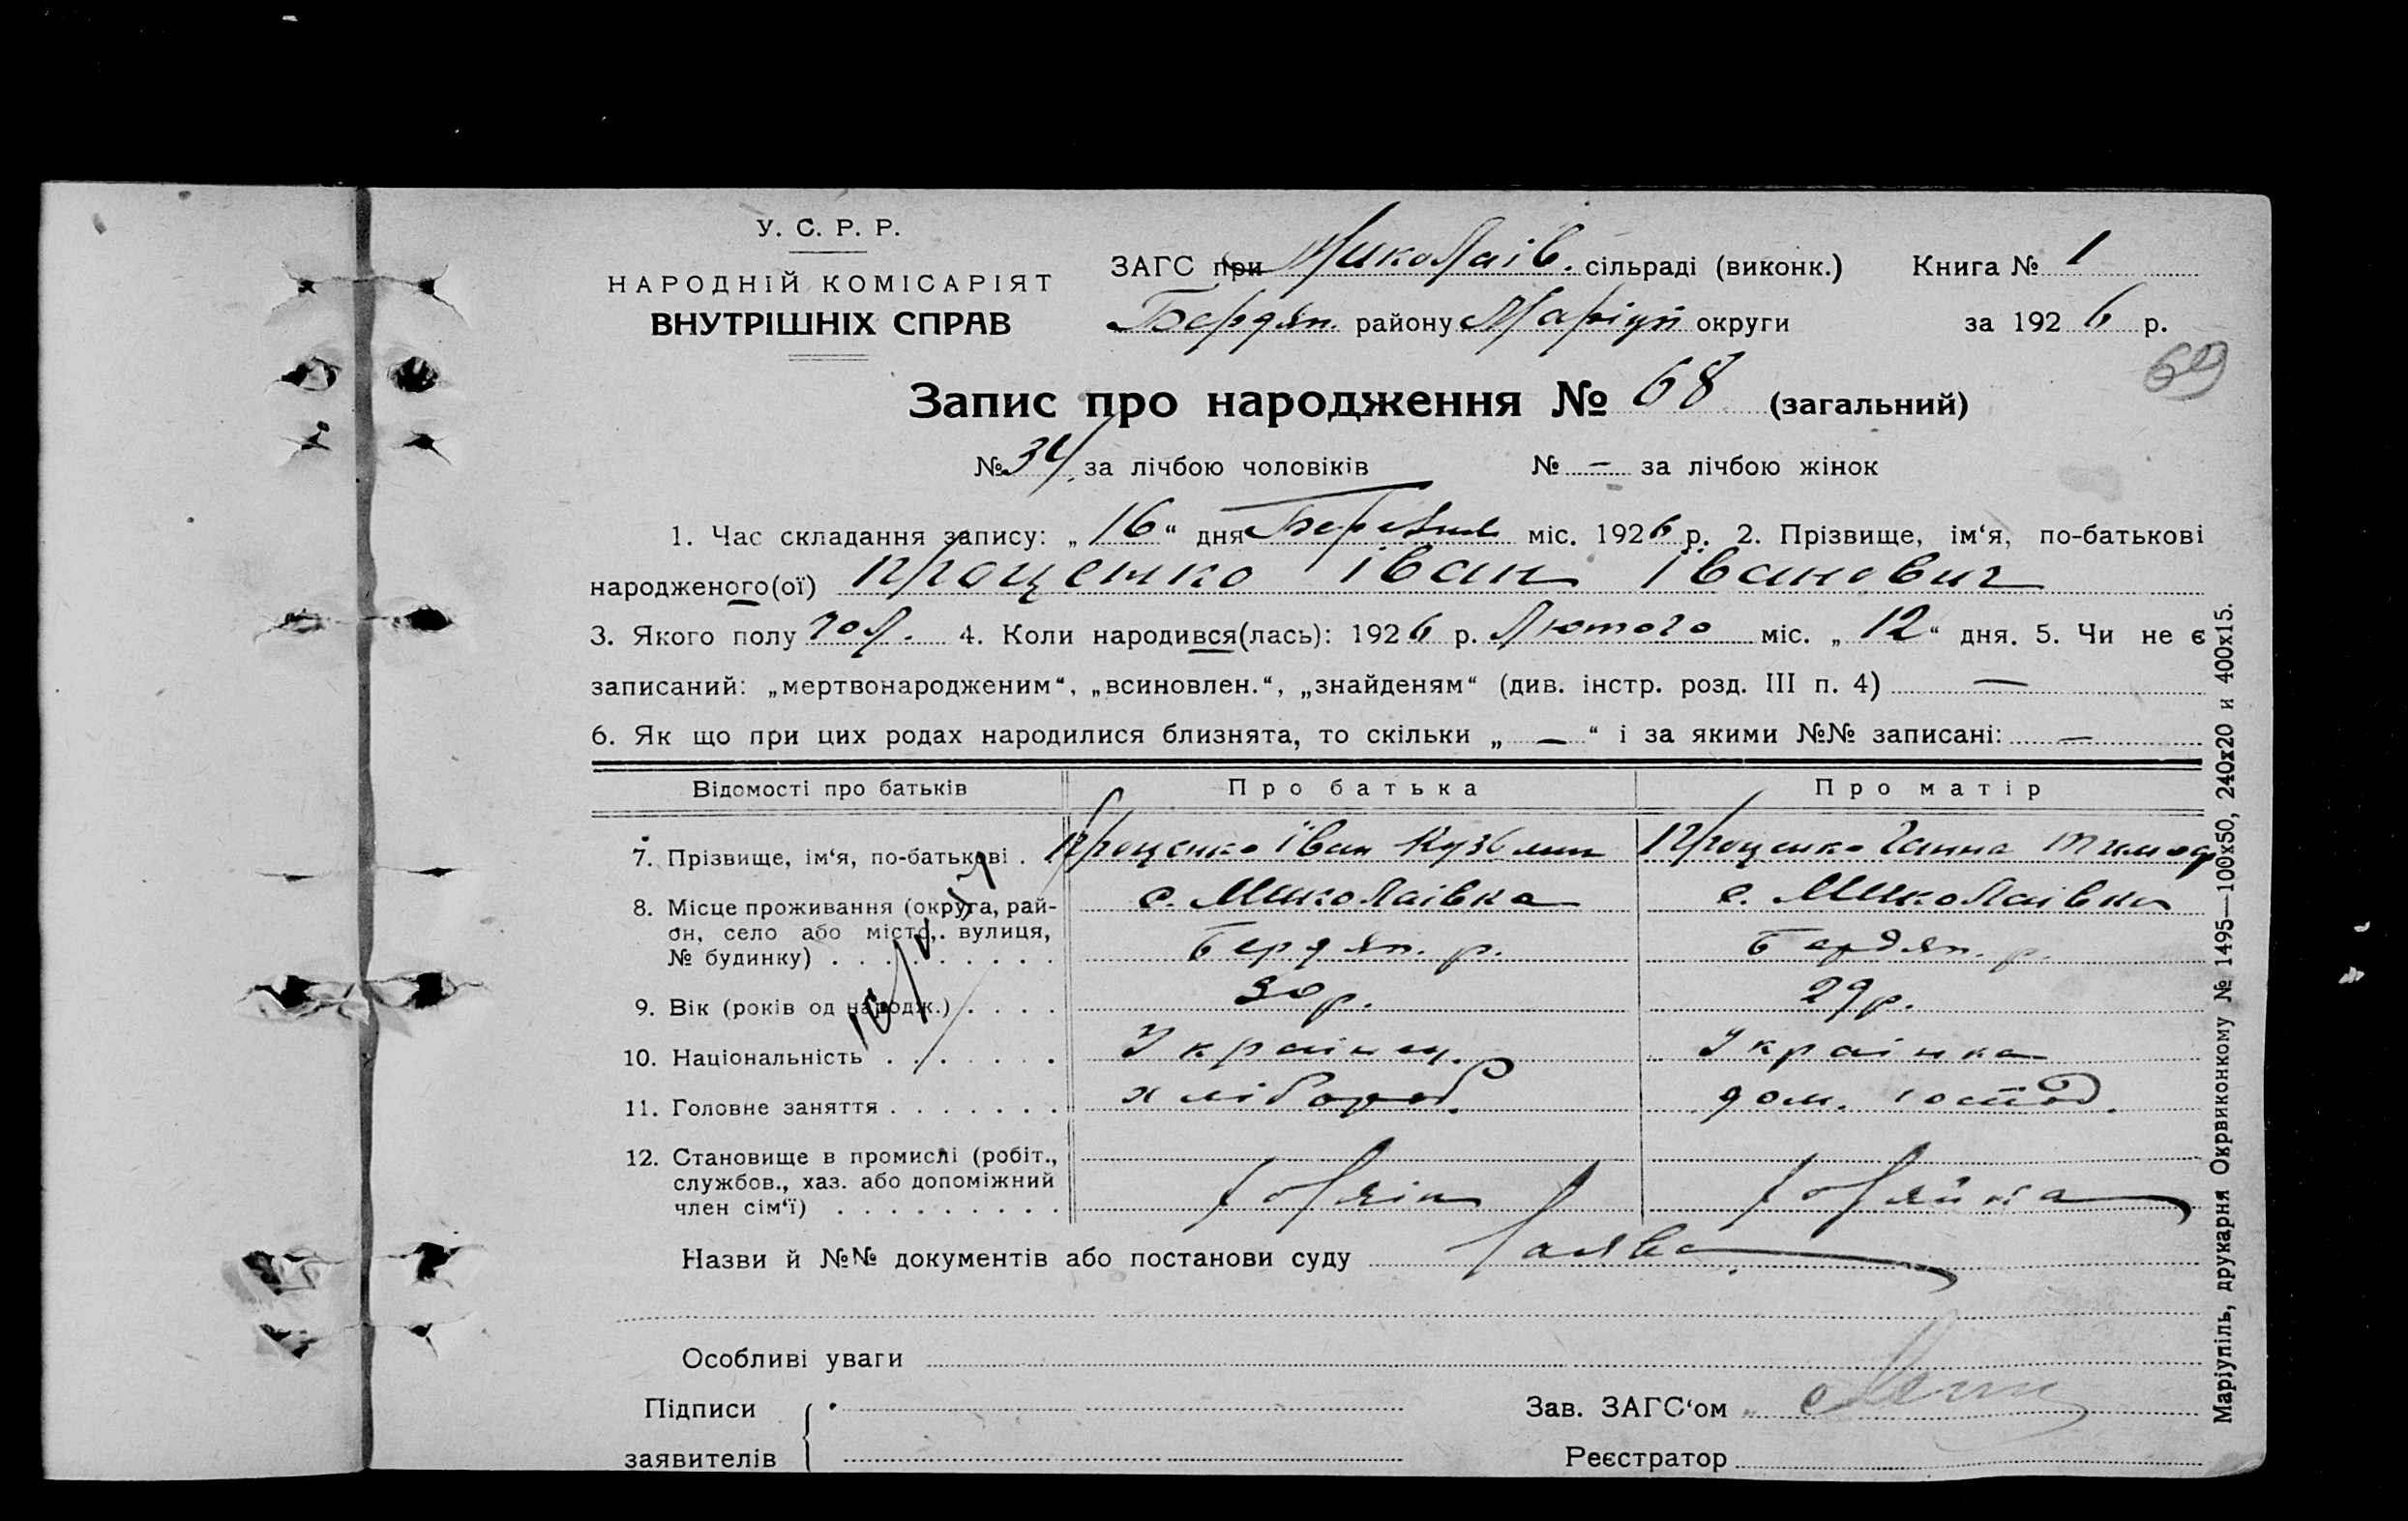 У. С. Р. Р.
НАРОДНІЙ КОМІСАРІЯТ
ВНУТРІШНІХ СПРАВ
ЗАГС при Миколаів. сільраді (виконк.) Книга № 1
Бердян. району Маріуп округи за 1926 р.
69
Запис про народження № 68 (загальний)
№ 34 за лічбою чоловіків № — за лічбою жінок
1. Час складання запису: „16“ дня Березня міс. 1926 р. 2. Прізвище, ім‘я, по-батькові
народженого(ої) Проценко Іван Іванович
3. Якого полу чол. 4. Коли народився(лась): 1926 р. Лютого міс. „12“ дня. 5. Чи не є
записаний: „мертвонародженим“, „всиновлен.“, „знайденям“ (див. інстр. розд. III п. 4) —
6. Як що при цих родах народилися близнята, то скільки „—“ і за якими №№ записані: —
Відомості про батьків Про батька Про матір
7. Прізвище, ім‘я, по-батькові . Проценко Іван Кузьмич Проценко Ганна Тимоф
8. Місце проживання (округа, рай- с. Миколаівка с. Миколаівка
он, село або місто, вулиця,
№ будинку) . . . . . . . . . Бердян. р. Бердян. р.
9. Вік (років од народж.) . . . . 30 р. 29 р.
10. Національність . . . . . . . Украінец. Украінка
11. Головне заняття . . . . . . . хлібороб. дом. господ.
12. Становище в промислі (робіт.,
службов., хаз. або допоміжний
член сім‘ї) . . . . . . . . .
Назви й №№ документів або постанови суду Заява
Особливі уваги
Підписи
заявителів
Зав. ЗАГС‘ом
Реєстратор
Маріупіль, друкарня Окрвиконкому № 1495—100х50, 240х20 и 400х15.